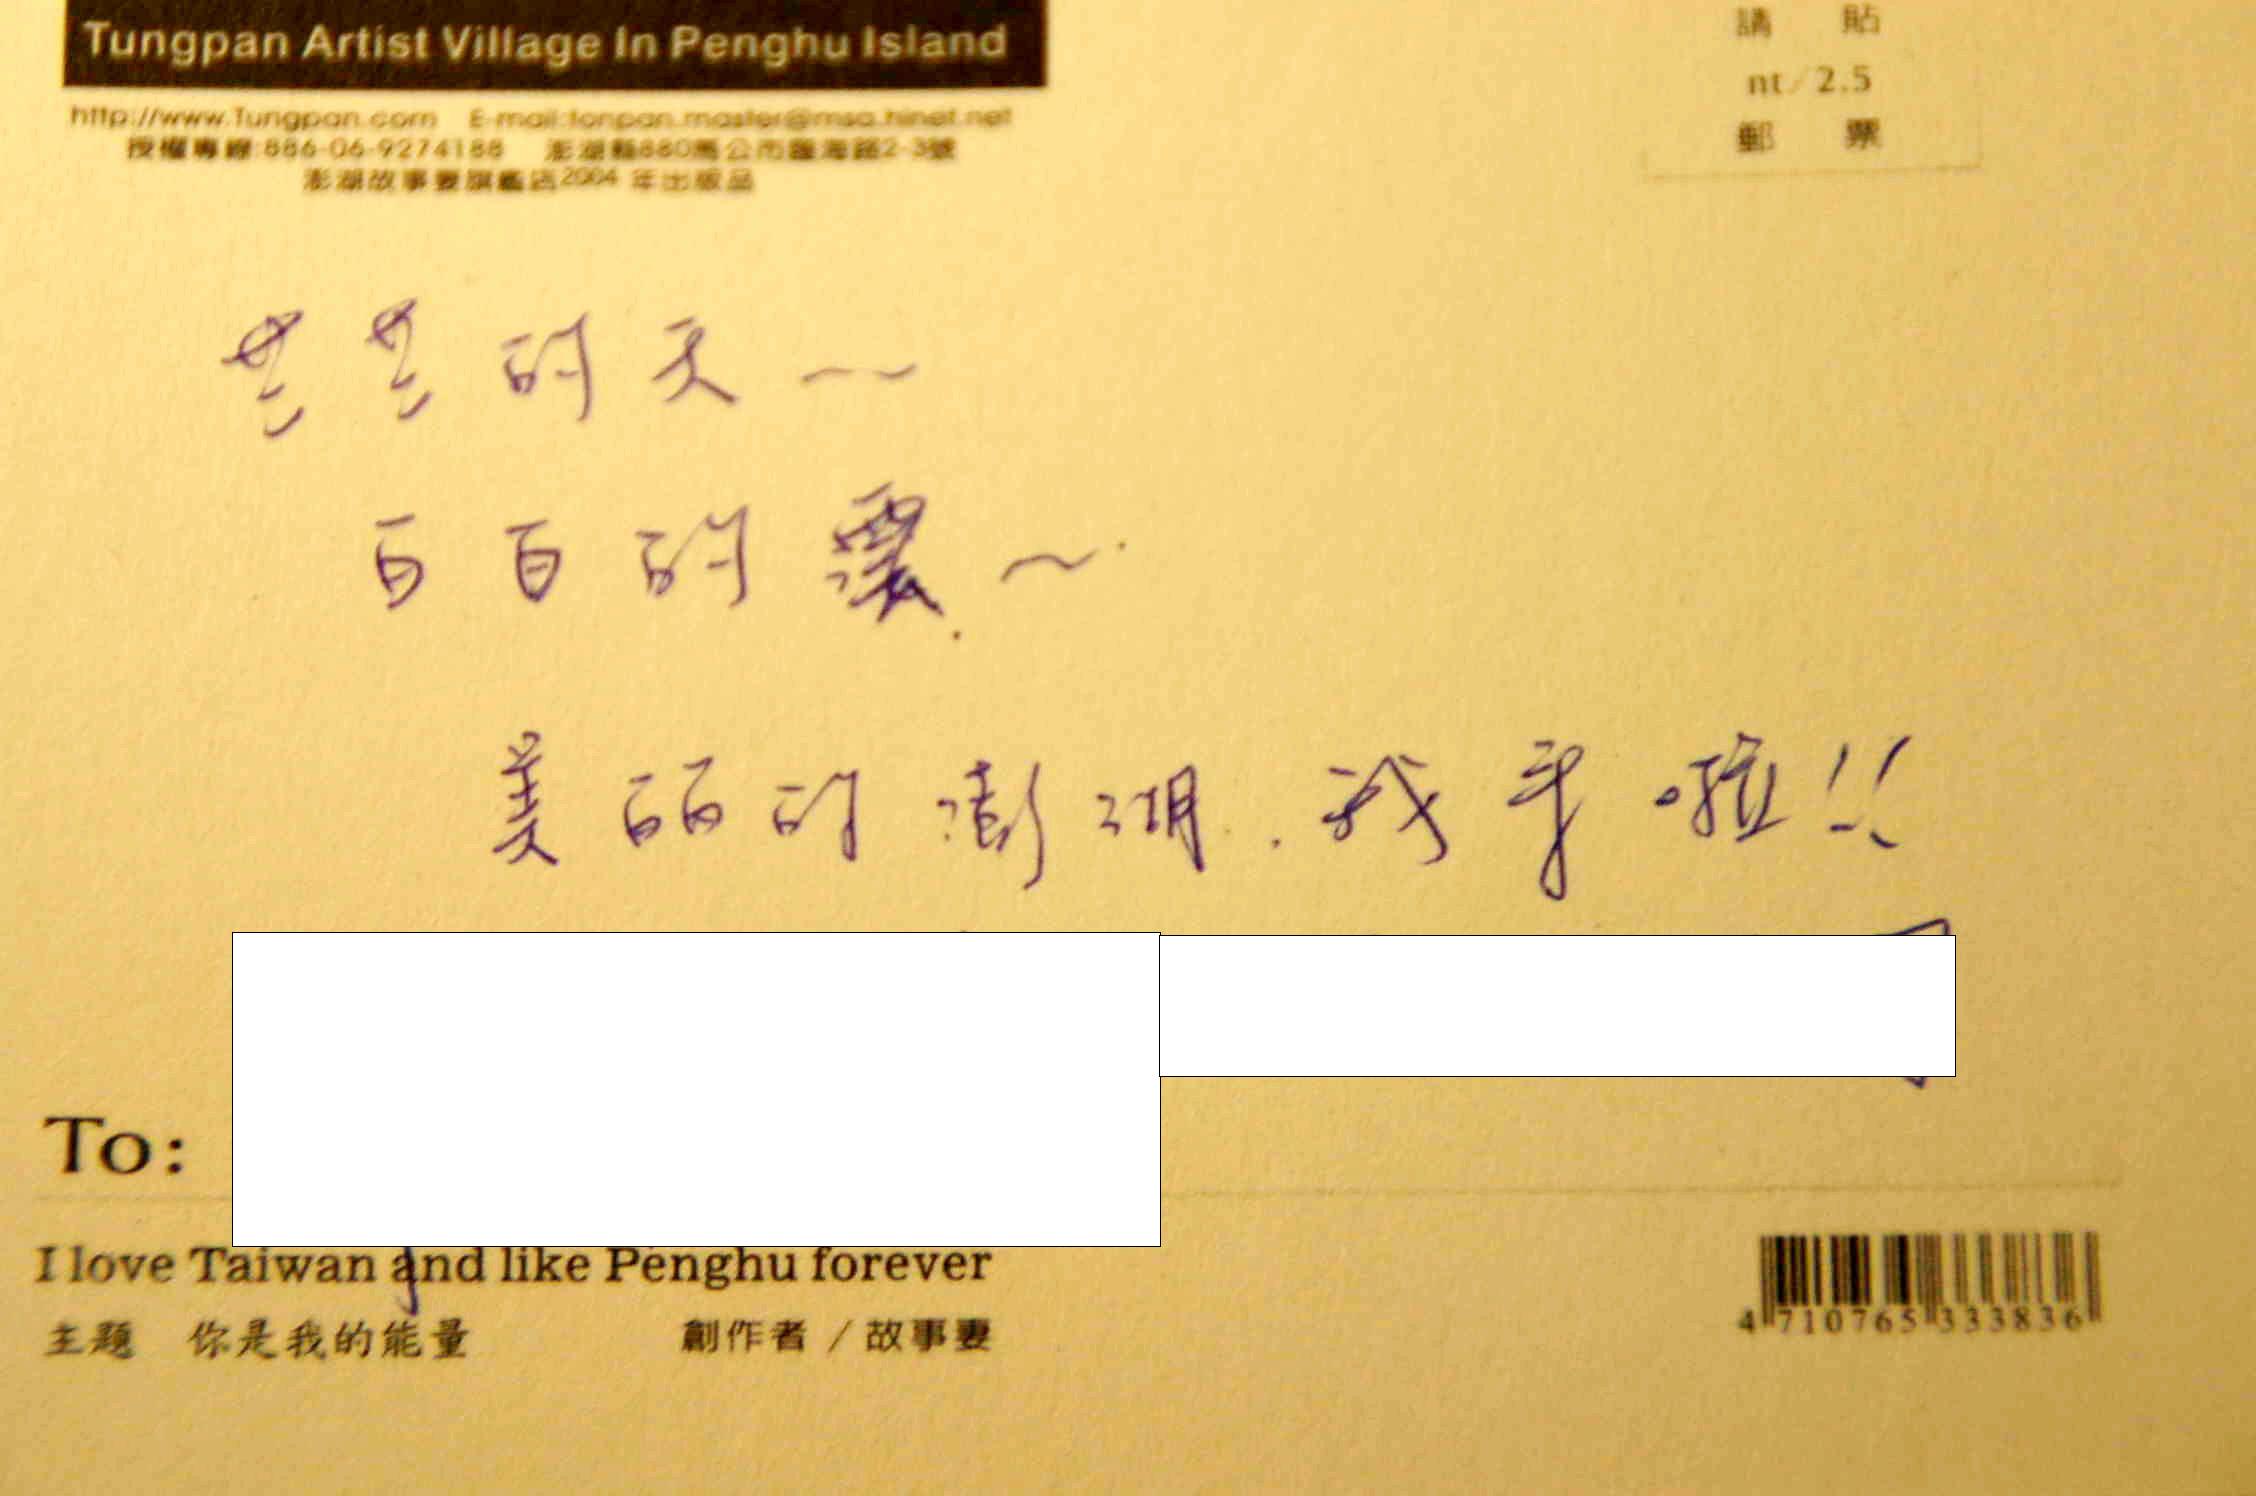 Tungpan Artist Village In Penghu Island
請 貼
nt/2.5
郵 票
http://www.Tungpan.com E-mail:tonpan.master@msa.hinet.net
授權專線:886-06-9274188 澎湖縣880馬公市臨海路2-3號
澎湖故事妻旗艦店2004 年出版品
的天~
白白的雲~
美丽的澎湖.我來啦!!
To:
I love Taiwan and like Penghu forever
主題 你是我的能量 創作者 / 故事妻
4 710765 333836